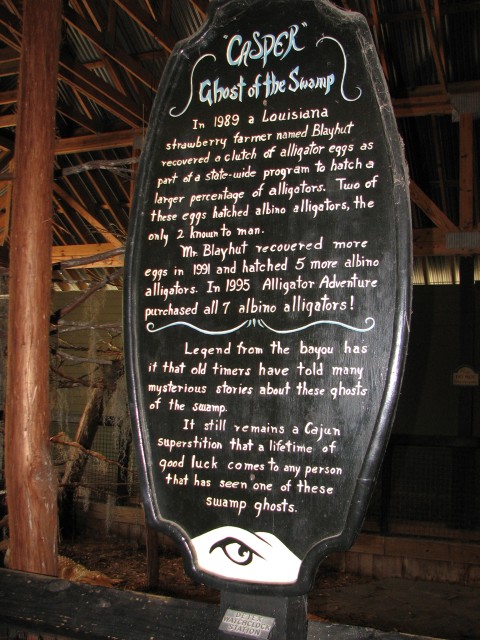 "CASPER"
Ghost of the Swamp
In 1989 a Louisiana
strawberry farmer named Blayhut
recovered a clutch of alligator eggs as
part of a state-wide program to hatch a
larger percentage of alligators. Two of
these eggs hatched albino alligators, the
only 2 known to man.
Mr. Blayhut recovered more
eggs in 1991 and hatched 5 more albino
alligators. In 1995 Alligator Adventure
purchased all 7 albino alligators!
Legend from the bayou has
it that old timers have told many
mysterious stories about these ghosts
of the swamp.
It still remains a Cajun
superstition that a lifetime of
good luck comes to any person
that has seen one of these
swamp ghosts.
DETEX
WATCHCLOCK
STATION